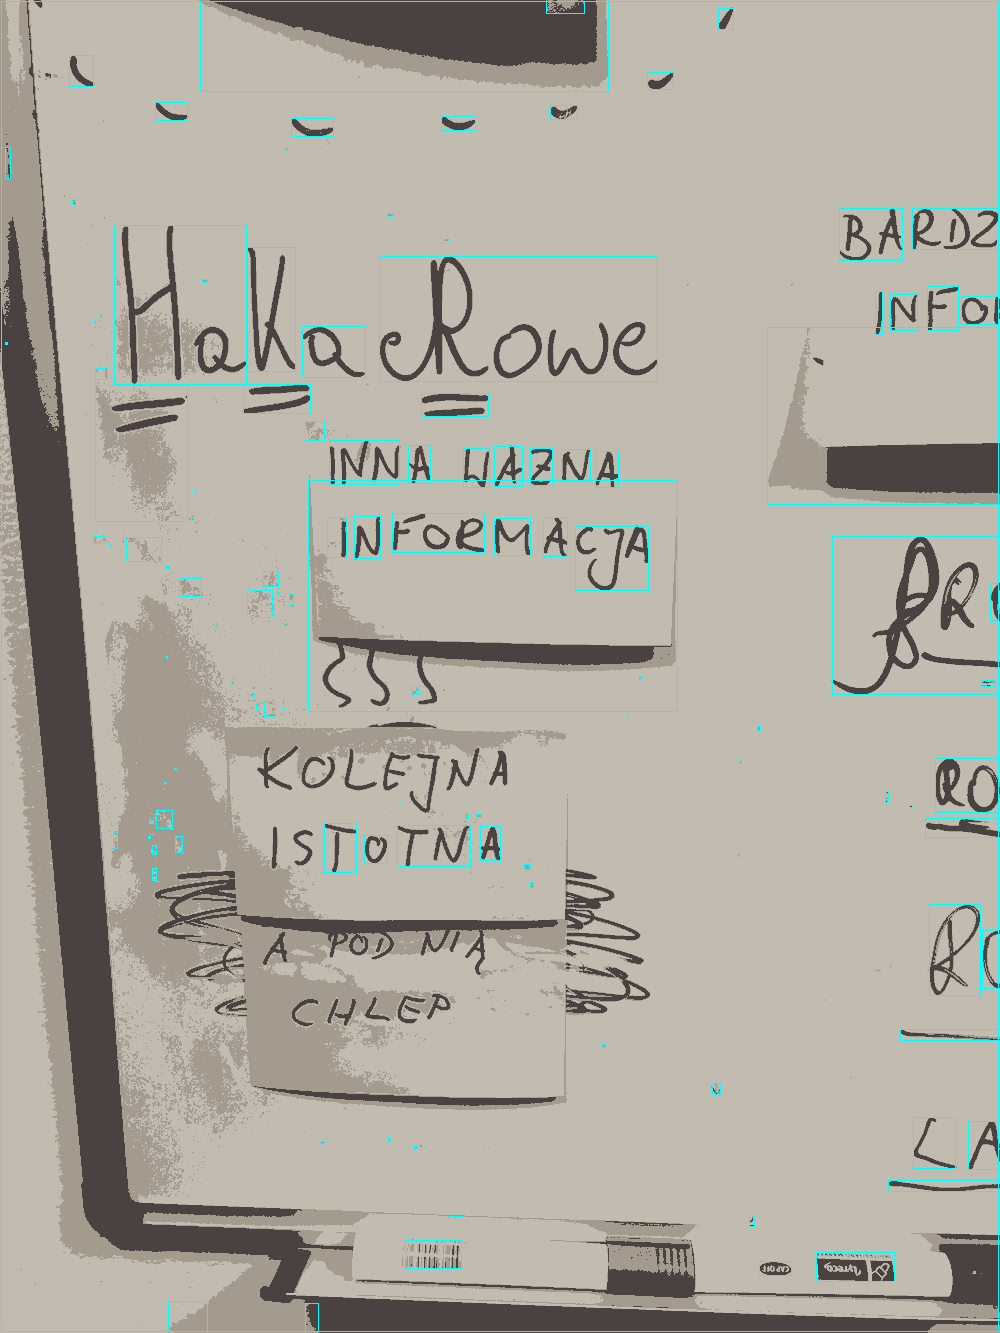 HaKa Rowe
INNA WAZNA
INFORMACJA
KOLEJNA
ISTOTNA
A POD NIĄ
CHLEP
BARDZ
INFO
RO
RO
LA
CAP OFF
lyreco